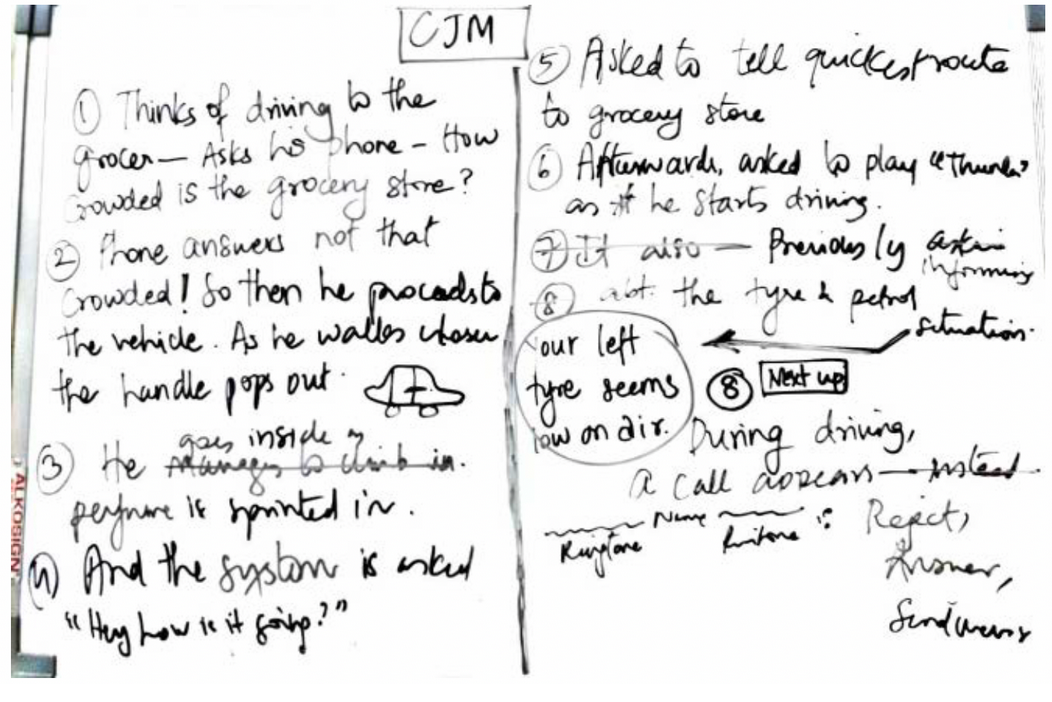 CJM
① Thinks of driving to the
grocer— Asks his phone - How
Crowded is the grocery store?
② Phone answers not that
Crowded! So then he proceeds to
the vehicle. As he walks closer
the handle pops out.
goes inside
③ He manages to climb in.
perfume is sprinted in.
④ And the system is asked
"Hey how is it going?"
⑤ Asked to tell quickest route
to grocery store
⑥ Afterwards, asked to play "Thunder"
as he starts driving.
⑦ It also — Previously asking
informing
⑧ abt. the tyre & petrol
situation.
Your left
tyre seems
low on air.
⑧ Next up
During driving,
a call appears — instead
Ringtone Name Ringtone : Reject,
Answer,
Send
ALKOSIGN